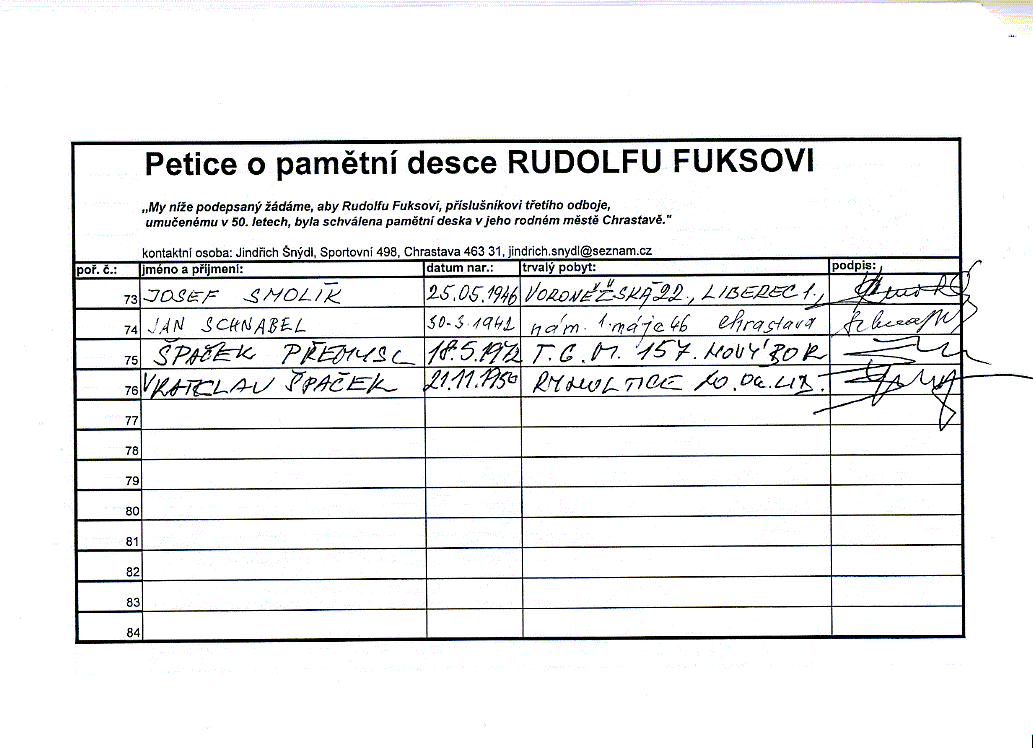 Petice o pamětní desce RUDOLFU FUKSOVI
„My níže podepsaný žádáme, aby Rudolfu Fuksovi, příslušníkovi třetího odboje,
umučenému v 50. letech, byla schválena pamětní deska v jeho rodném městě Chrastavě."
kontaktní osoba: Jindřich Šnýdl, Sportovní 498, Chrastava 463 31, jindrich.snydl@seznam.cz
poř. č.: jméno a příjmení: datum nar.: trvalý pobyt: podpis:
73 JOSEF SMOLÍK 25.05.1946 VORONĚŽSKÁ 22., LIBEREC 1.,
74 JAN SCHNABEL 30-3-1942 nám. 1. máje 46 Chrastava
75 ŠPAČEK PŘEMYSL 18.5.1972 T.G.M. 157. NOVÝ BOR
76 VRATCLAV ŠPAČEK 21.11.1950
77
78
79
80
81
82
83
84